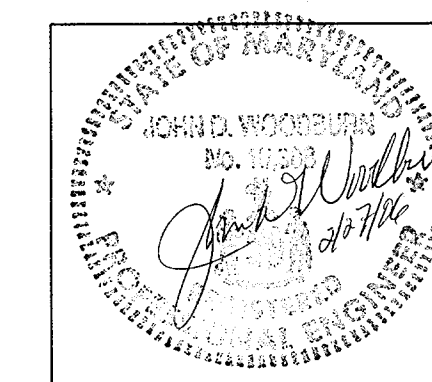 STATE OF MARYLAND
JOHN D. WOODBURN
No.
2/27/06
REGISTERED
PROFESSIONAL ENGINEER